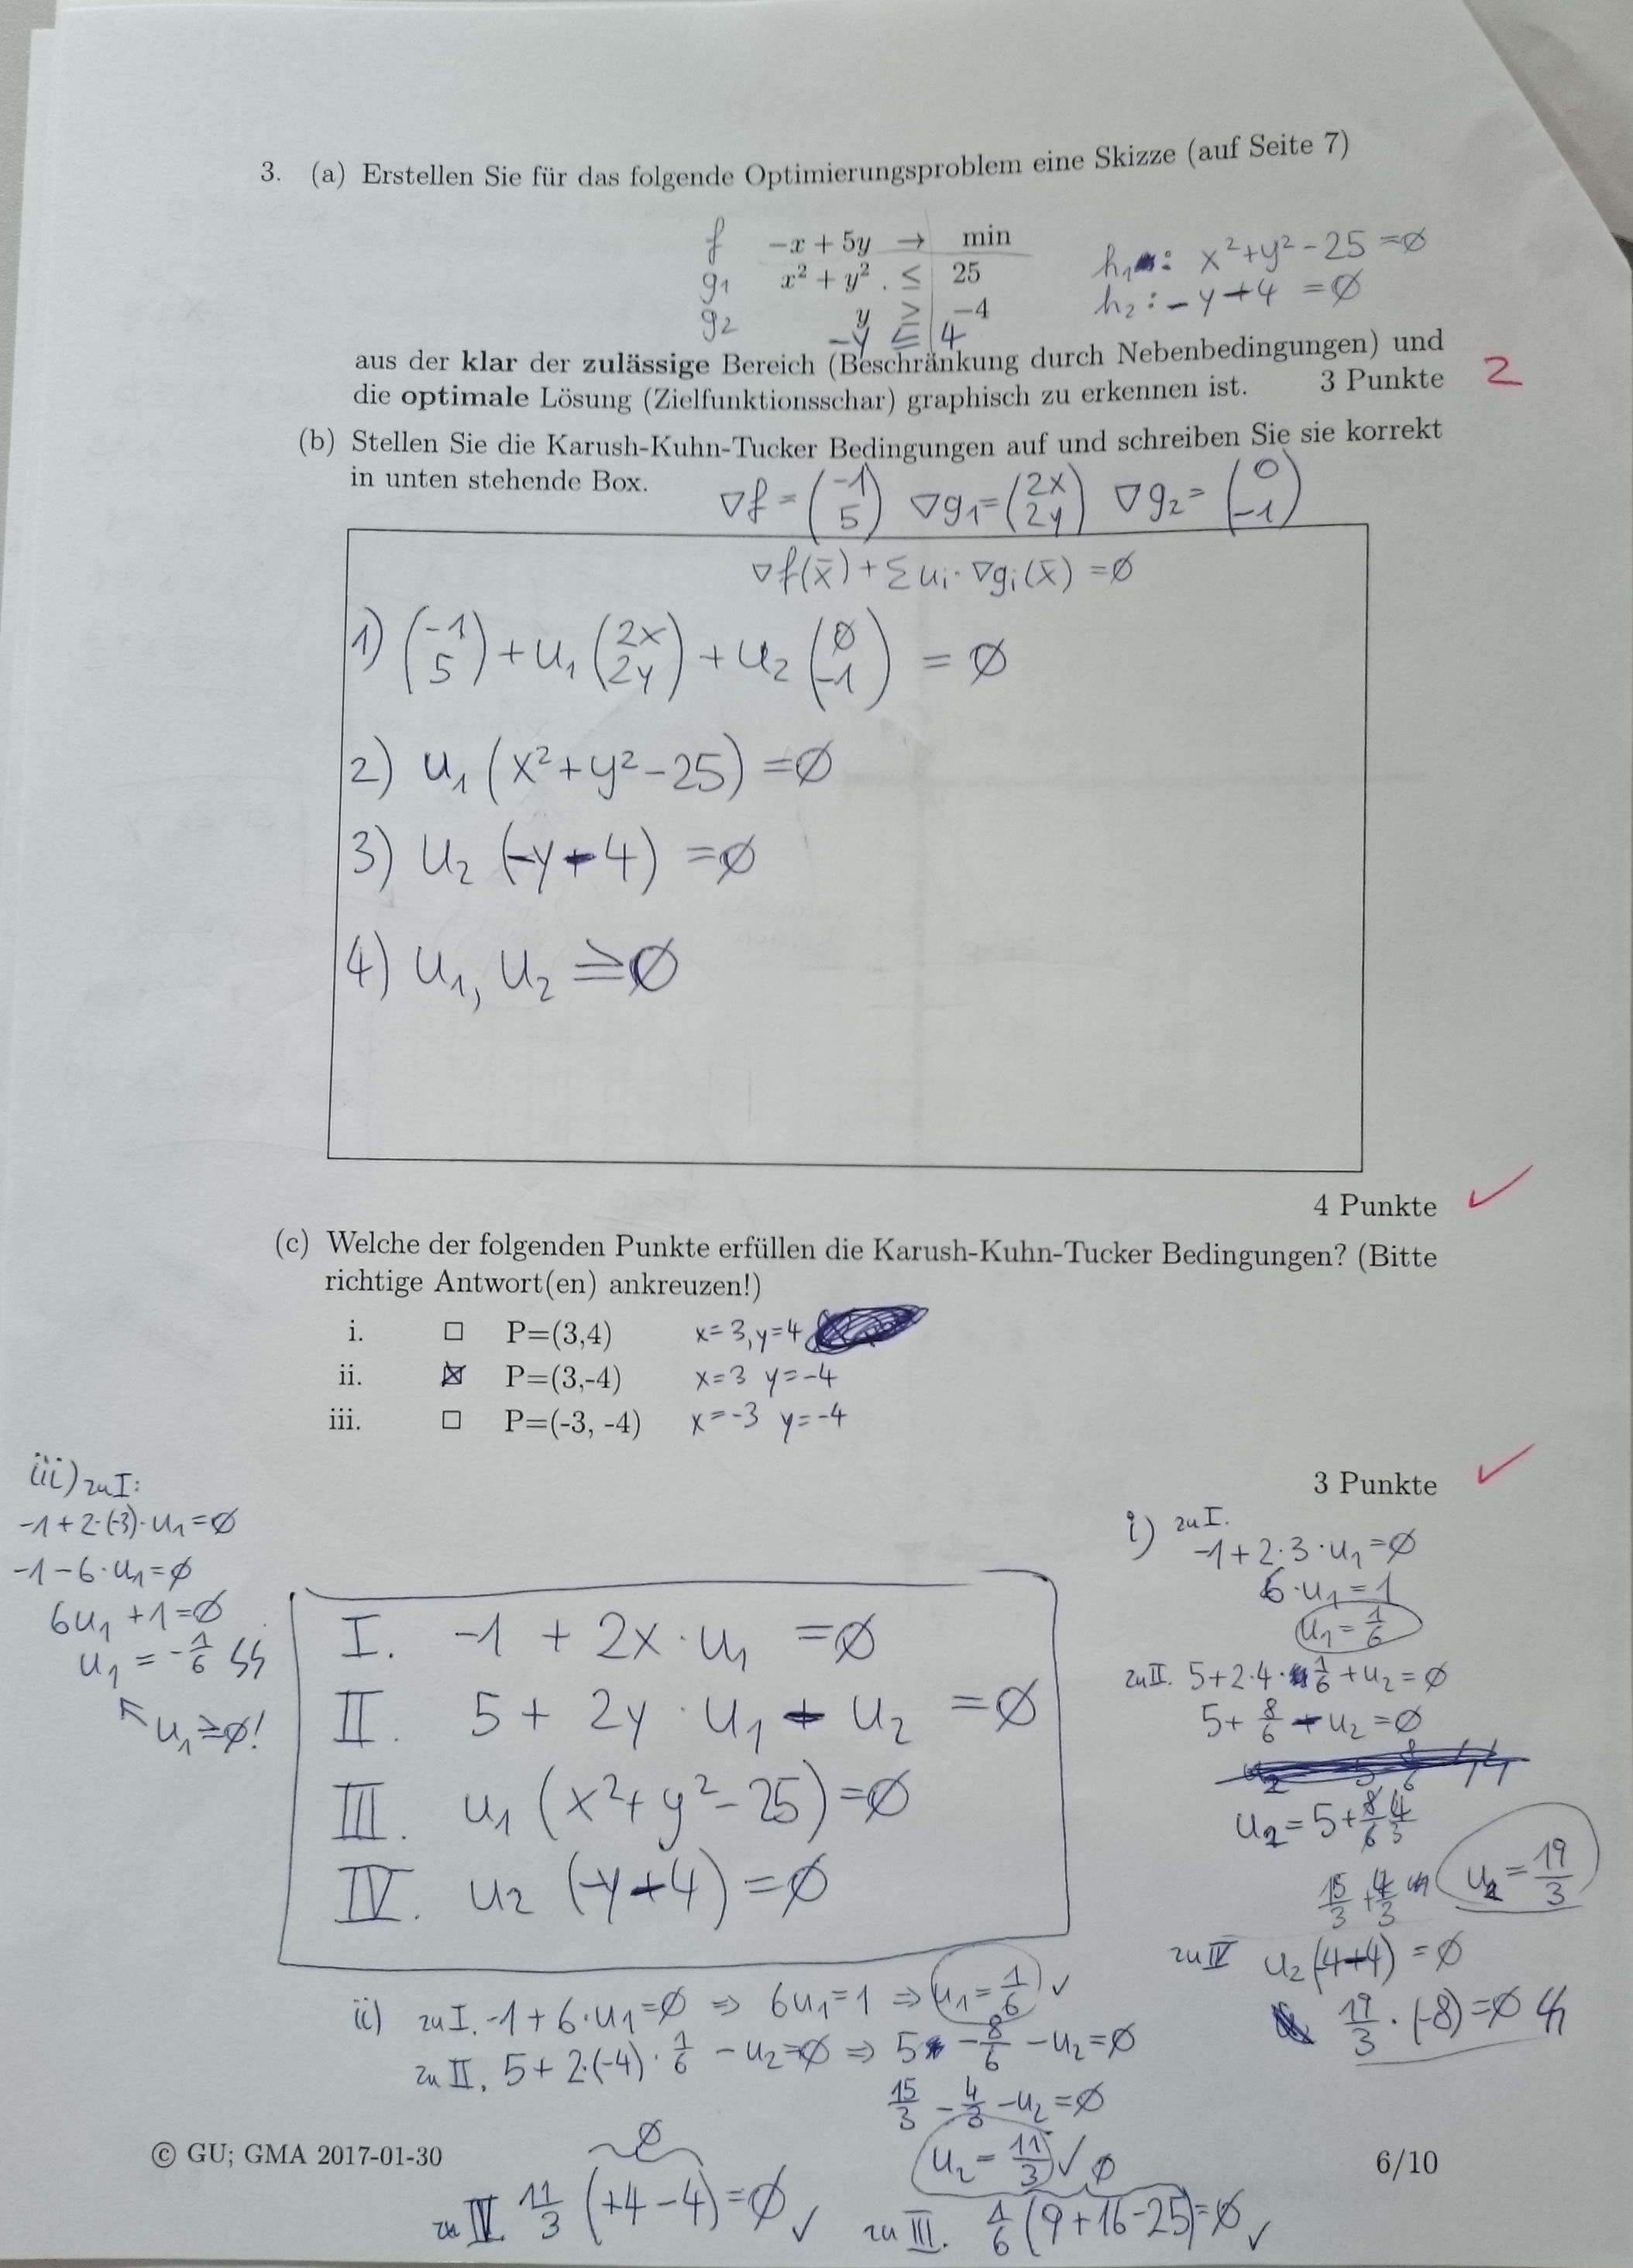 3. (a) Erstellen Sie für das folgende Optimierungsproblem eine Skizze (auf Seite 7)
f −x + 5y → min
g₁ x² + y² ≤ 25
g₂ y ≥ −4
−y ≤ 4
h₁: x²+y²−25 =∅
h₂: −y−4 =∅
aus der klar der zulässige Bereich (Beschränkung durch Nebenbedingungen) und
die optimale Lösung (Zielfunktionsschar) graphisch zu erkennen ist. 3 Punkte 2
(b) Stellen Sie die Karush-Kuhn-Tucker Bedingungen auf und schreiben Sie sie korrekt
in unten stehende Box.
∇f = (-1 5) ∇g₁= (2x 2y) ∇g₂= (0 -1)
∇f(x̄) + Σ uᵢ · ∇gᵢ(x̄) =∅
1) (-1 5) + u₁ (2x 2y) + u₂ (∅ -1) = ∅
2) u₁ (x²+y²−25) =∅
3) u₂ (−y−4) =∅
4) u₁, u₂ ≥∅
4 Punkte ✓
(c) Welche der folgenden Punkte erfüllen die Karush-Kuhn-Tucker Bedingungen? (Bitte
richtige Antwort(en) ankreuzen!)
i. ☐ P=(3,4) x=3, y=4
ii. ☒ P=(3,-4) x=3 y=−4
iii. ☐ P=(-3, -4) x=−3 y=−4
3 Punkte ✓
iii) zu I:
−1+2·(−3)·u₁=∅
−1−6·u₁=∅
6u₁+1=∅
u₁ = −1/6 ↯↯
↖ u₁≥∅!
I. −1 + 2x · u₁ =∅
II. 5 + 2y · u₁ − u₂ =∅
III. u₁ (x²+y²−25)=∅
IV. u₂ (−y−4)=∅
i) zu I.
−1+2·3·u₁=∅
6·u₁=1
u₁=1/6
zu II. 5+2·4·1/6+u₂=∅
5+ 8/6 −u₂=∅
u₂=5+8/6 4/3
15/3 + 4/3
u₂ = 19/3
zu IV u₂(−4−4) =∅
19/3 · (−8)=∅ ↯
ii) zu I. −1+6·u₁=∅ ⇒ 6u₁=1 ⇒ u₁=1/6 ✓
zu II. 5+2·(−4)·1/6 −u₂=∅ ⇒ 5 − 8/6 −u₂=∅
15/3 − 4/3 −u₂=∅
u₂ = 11/3 ✓
© GU; GMA 2017-01-30 6/10
∅
zu IV. 11/3 (+4−4)=∅ ✓
∅
zu III. 1/6 (9+16−25)=∅ ✓